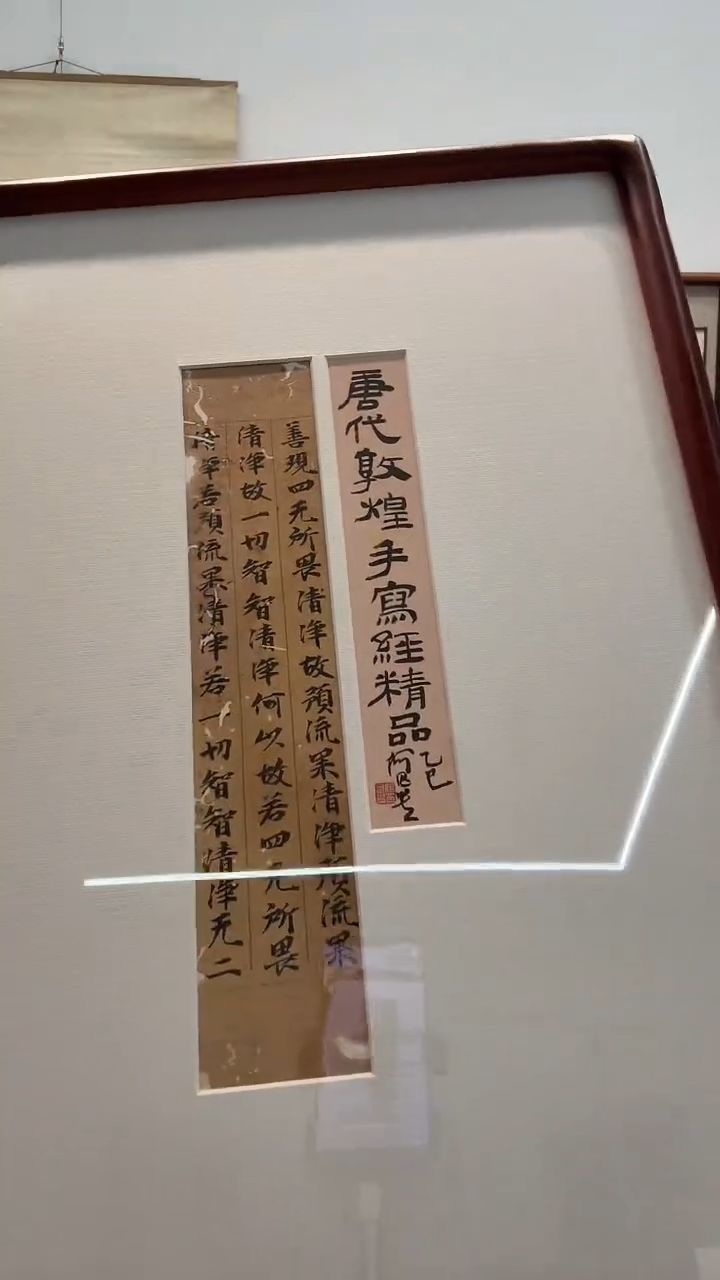 唐代敦煌手寫經精品
乙巳
善現四无所畏清淨故預流果清淨預流果
清淨故一切智智清淨何以故若四无所畏
清淨若預流果清淨若一切智智清淨无二